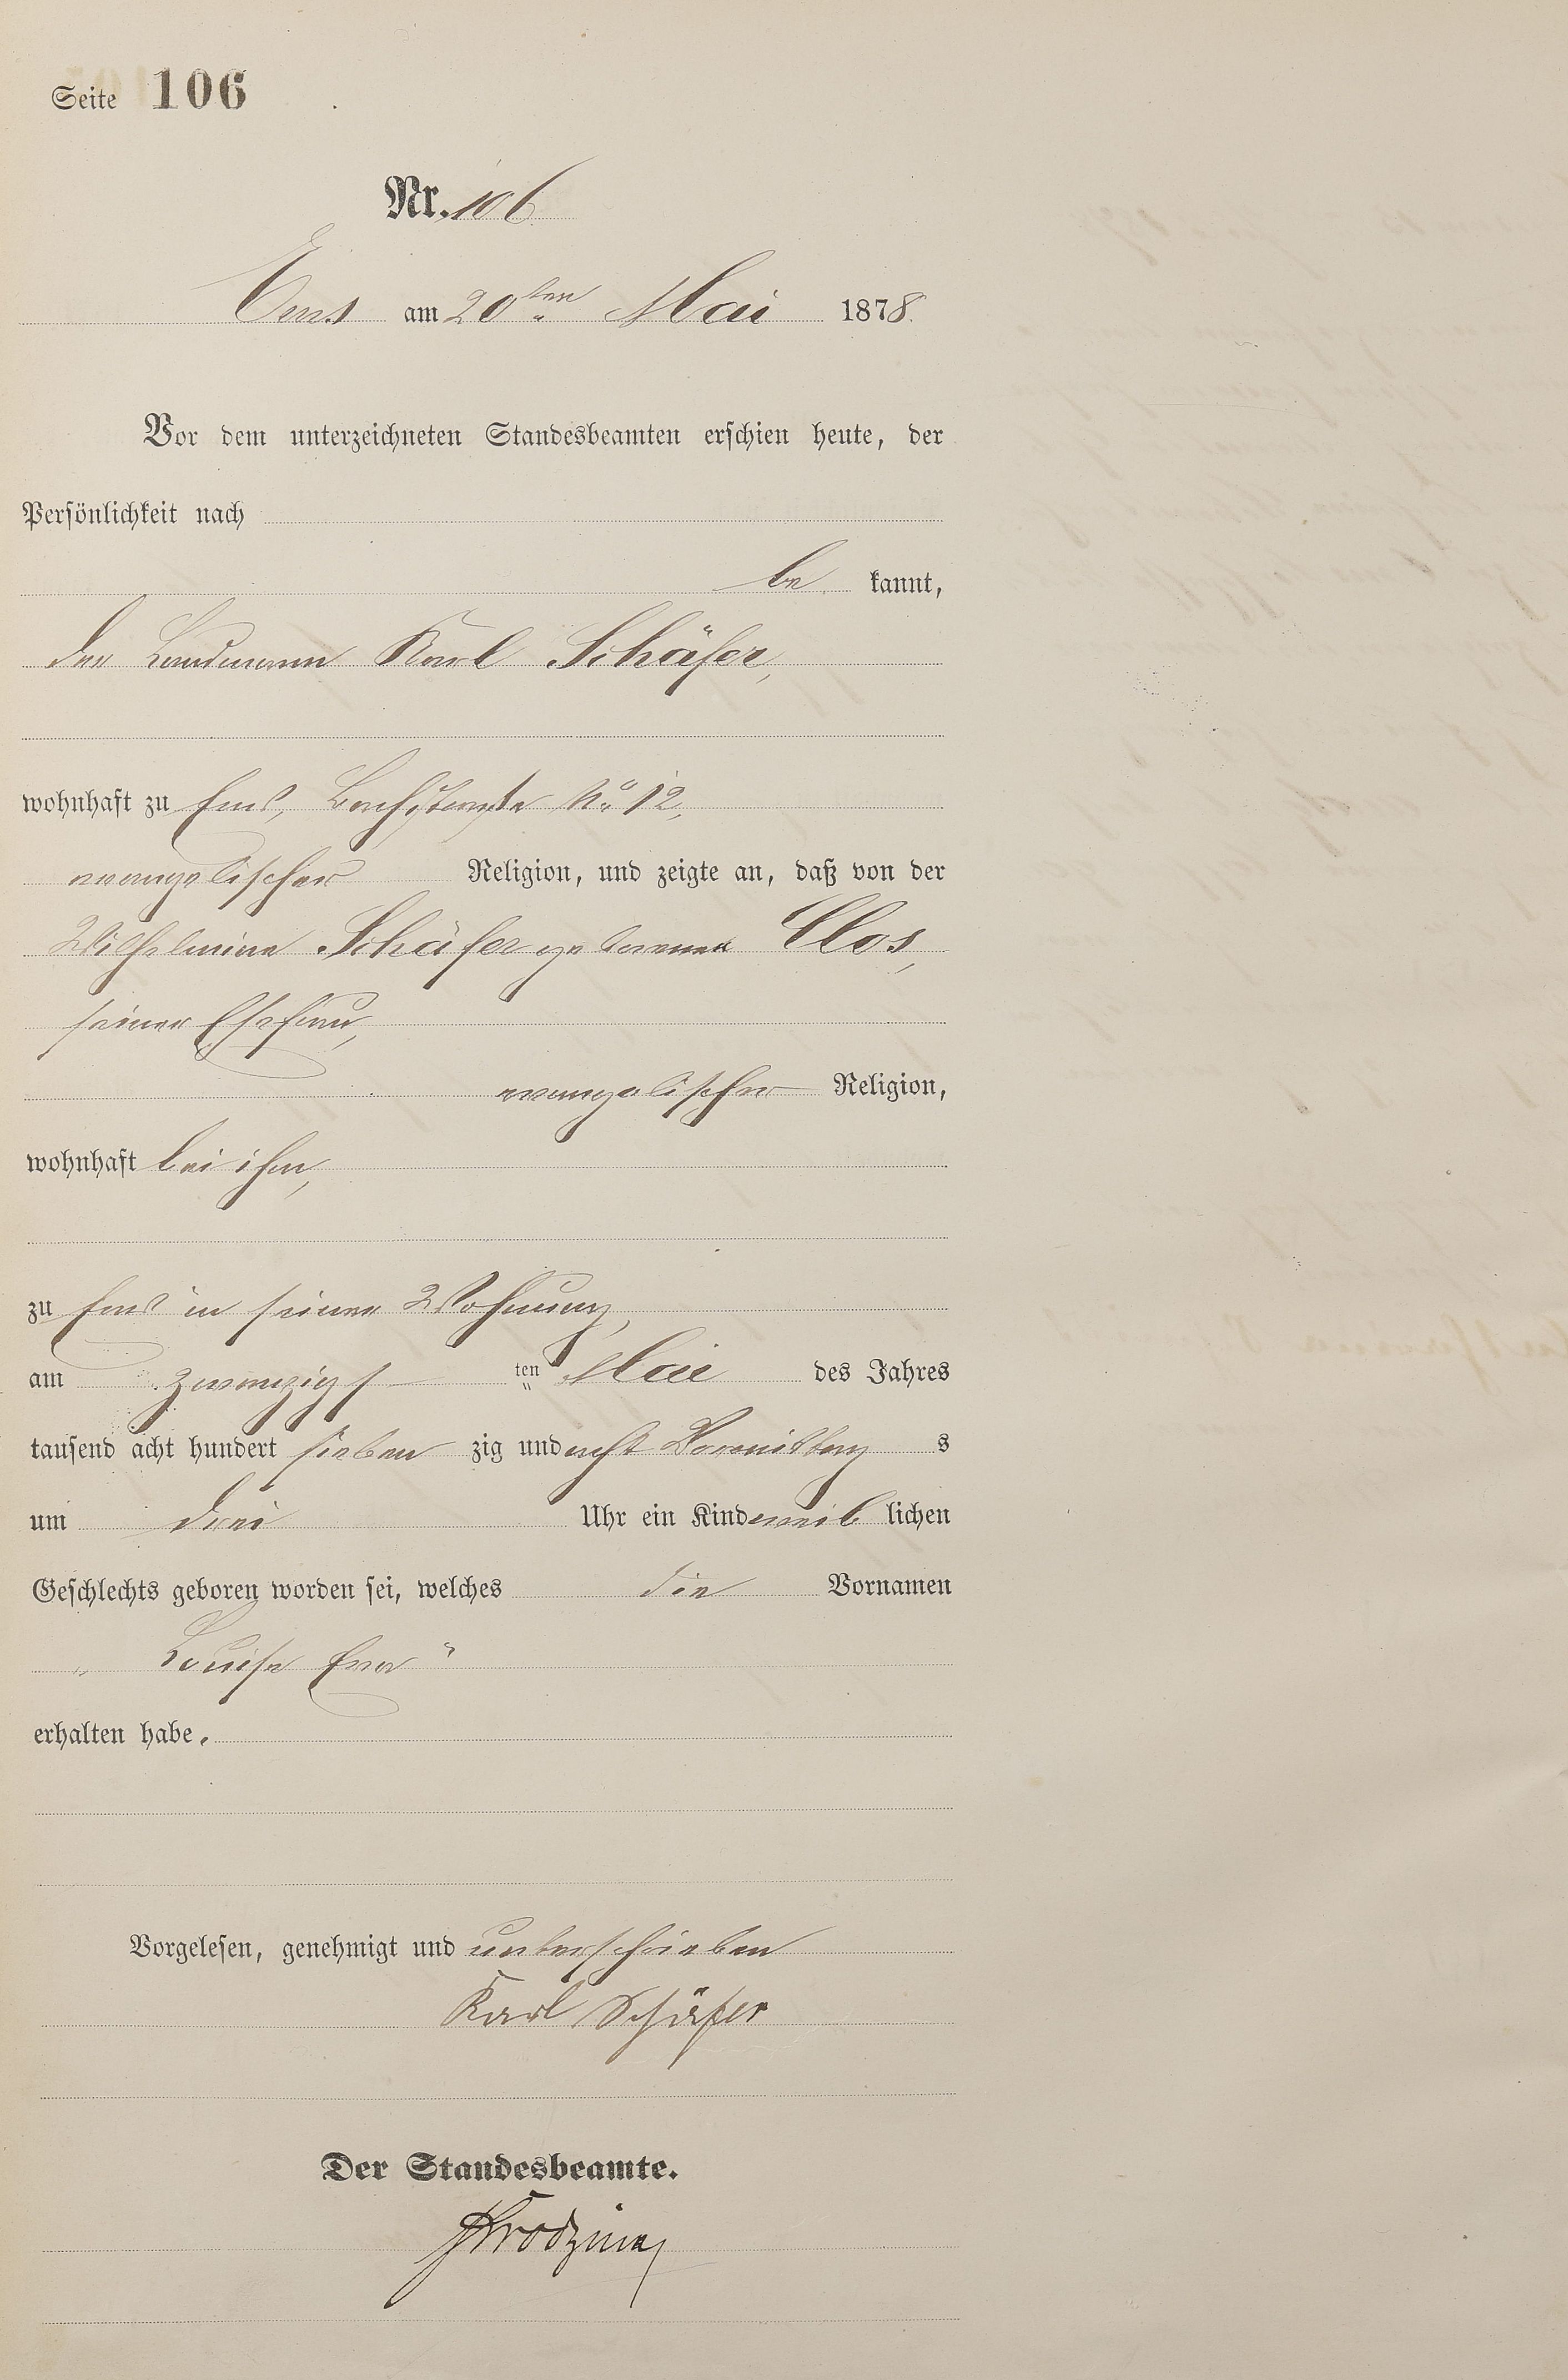 Seite 106
Nr. 106
Ems am 20ten Mai 1878.
Vor dem unterzeichneten Standesbeamten erschien heute, der
Persönlichkeit nach
be kannt,
der Landmann Karl Schäfer,
wohnhaft zu Ems, Bachstraße No 12,
evangelischer Religion, und zeigte an, daß von der
Wilhelmine Schäfer geborenen Clos,
seiner Ehefrau,
evangelischer Religion,
wohnhaft bei ihm,
zu Ems in seiner Wohnung,
am zwanzigs ten Mai des Jahres
tausend acht hundert sieben zig und acht Vormittag s
um drei Uhr ein Kind weib lichen
Geschlechts geboren worden sei, welches die Vornamen
„ Louise Eva “
erhalten habe.
Vorgelesen, genehmigt und unterschrieben
Karl Schäfer
Der Standesbeamte.